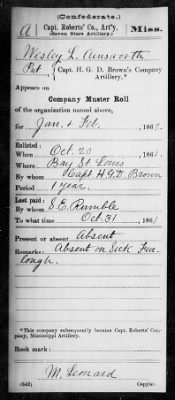 (Confederate.)
A Capt. Roberts' Co., Art'y. Miss.
(Seven Stars Artillery.)
Wesley L. Ainsworth
Pvt, Capt. H. G. D. Brown's Company
Artillery.*
Appears on
Company Muster Roll
of the organization named above,
for Jan. & Feb. , 186
Enlisted:
When Oct. 20 , 186
Where Bay St. Louis
By whom Capt H. G. D. Brown
Period 1 year
Last paid:
By whom S. E. Rumble
To what time Oct. 31 , 1861
Present or absent Absent
Remarks: Absent on Sick Fur-
lough.
*This company subsequently became Capt. Roberts' Com-
pany, Mississippi Artillery.
Book mark:
M. Leonard
(642) Copyist.